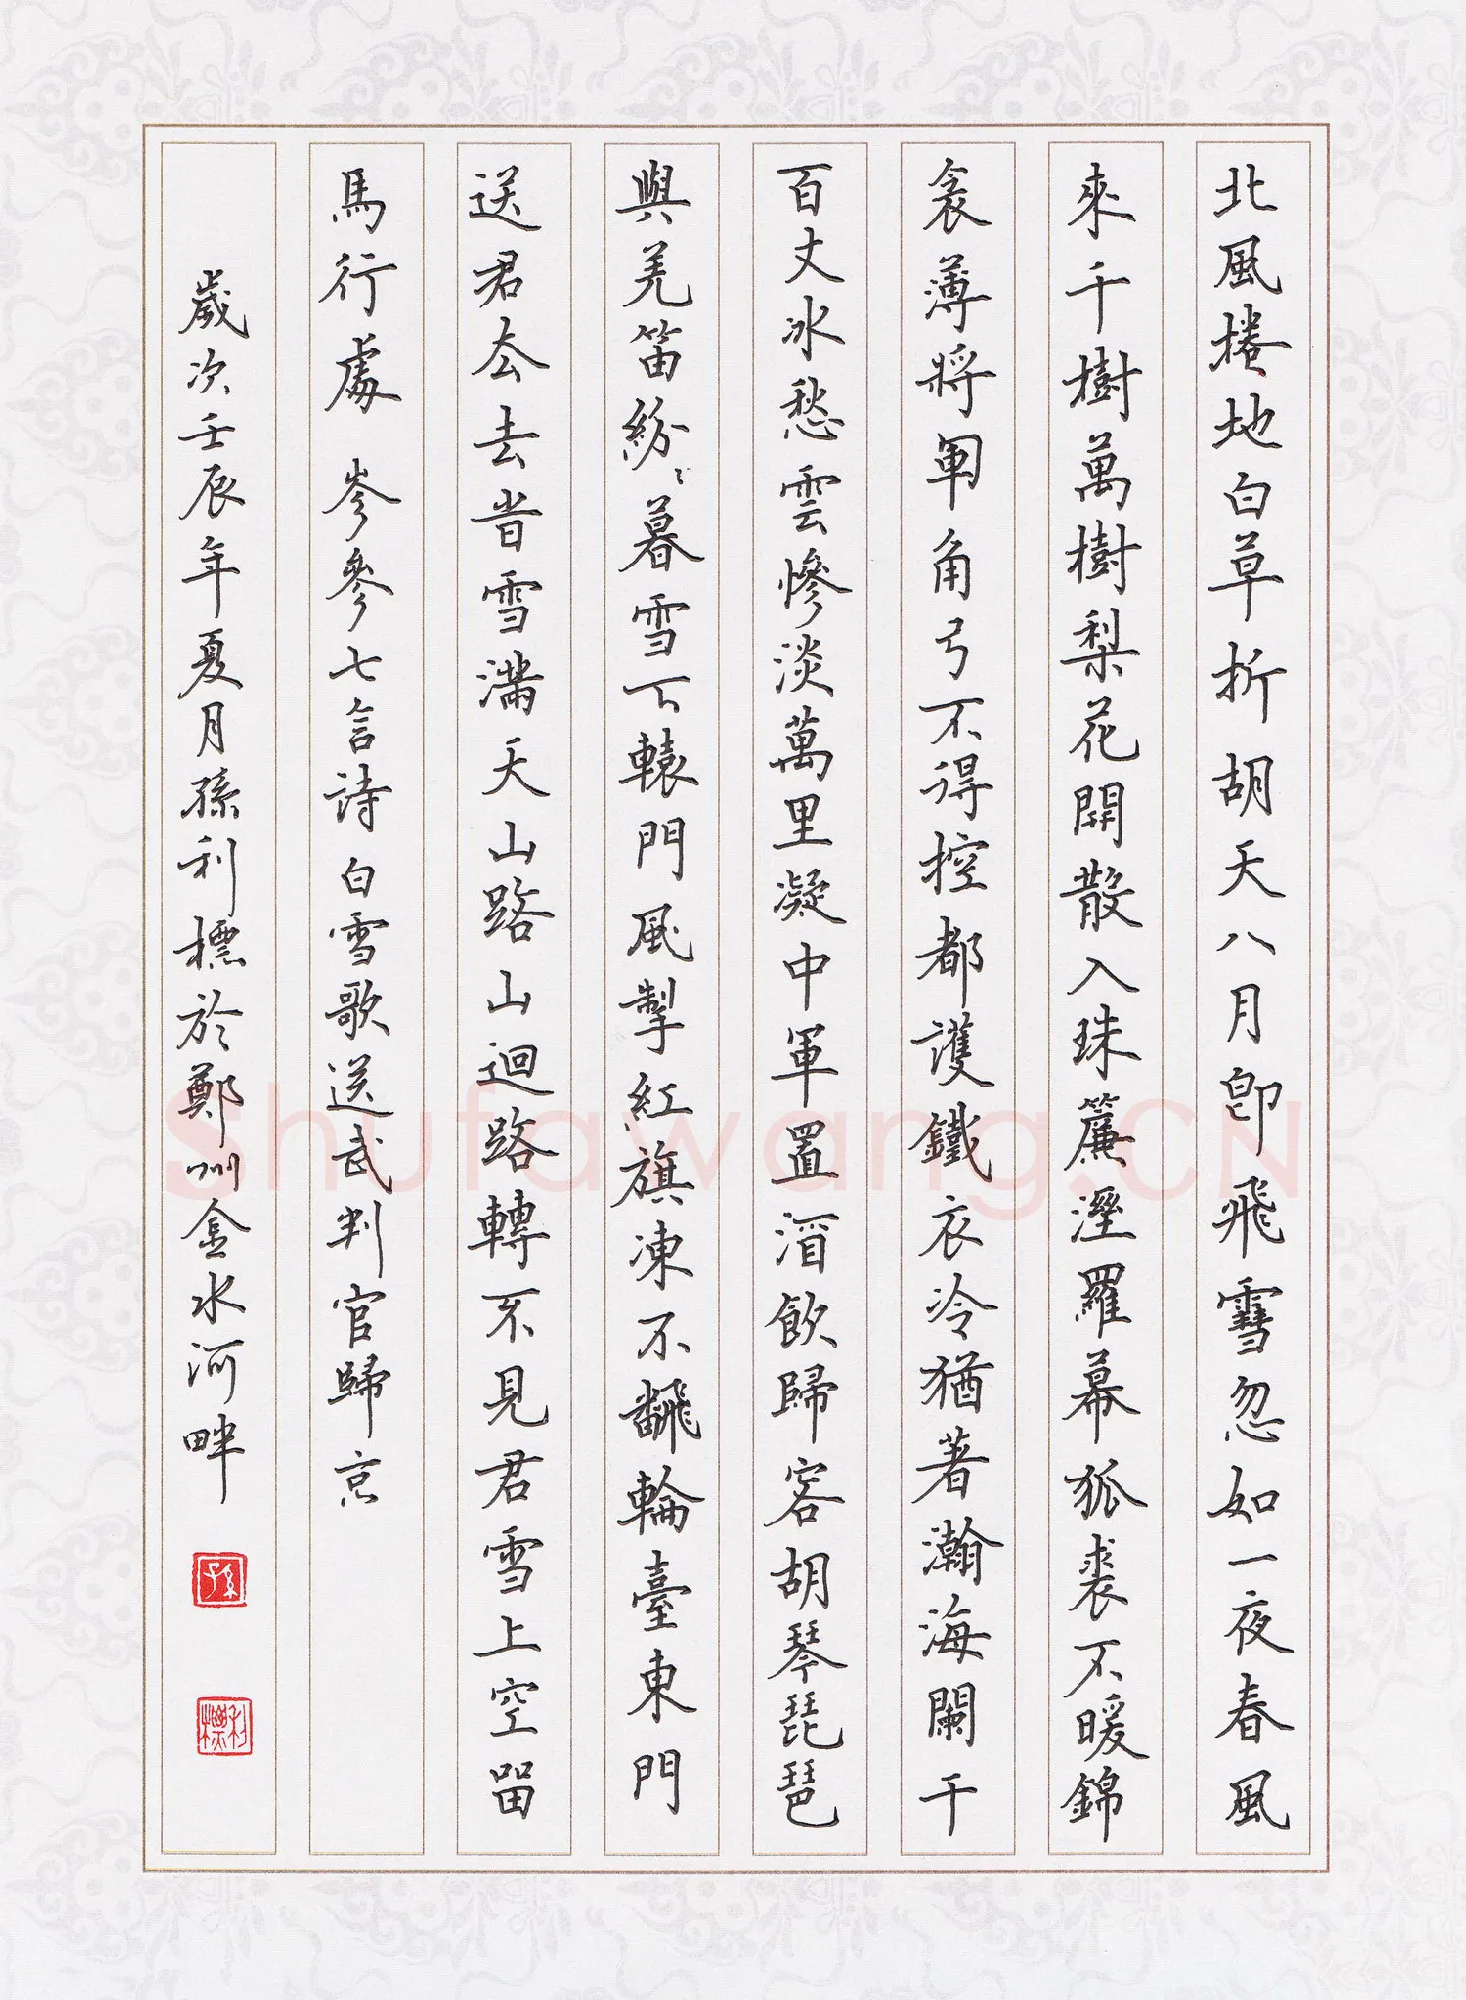 北風捲地白草折胡天八月即飛雪忽如一夜春風
來千樹萬樹梨花開散入珠簾溼羅幕狐裘不暖錦
衾薄將軍角弓不得控都護鐵衣冷猶著瀚海闌干
百丈冰愁雲慘淡萬里凝中軍置酒飲歸客胡琴琵琶
與羌笛紛々暮雪下轅門風掣紅旗凍不飜輪臺東門
送君去去旹雪滿天山路山迴路轉不見君雪上空留
馬行處 岑參七言詩 白雪歌送武判官歸京
歲次壬辰年夏月孫利標於鄭州金水河畔
孫
利標
Shufawang.CN